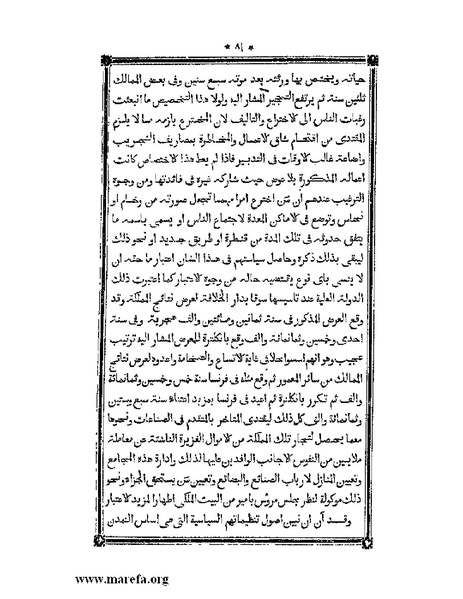 * ٨١ *
حياته ويختص بها ورثته بعد موته سبع سنين وفى بعض الممالك
ثلثين سنة ثم يرتفع التحجير المشار اليه ولولا هذا التخصيص ما انبعثت
رغبات الناس الى الاختراع والتاليف لان المخترع يلزمه ما لا يلزم
المقتدى من اقتحام مشاق الاعمال والمخاطرة بمصاريف التجريب
واضاعة غالب الاوقات فى التدبير فاذا لم يعط هذا الاختصاص كانت
اعماله المذكورة بلا عوض حيث شاركه غيره فى فائدتها ومن وجوه
الترغيب عندهم ان من اخترع امرا مهما تجعل صورته من رخام او
نحاس وتوضع فى الاماكن المعدة لاجتماع الناس او يسمى باسمه ما
يتفق حدوثه فى تلك المدة من قنطرة او طريق جديد او نحو ذلك
ليبقى بذلك ذكره وحاصل سياستهم فى هذا الشان اعتبار ما حقه ان
لا ينسى باى نوع يقتضيه حاله من وجوه الاعتبار كما اعتبرت ذلك
الدولة العلية عند تاسيسها سوقا بدار الخلافة لعرض نتائج المملكة وقد
وقع العرض المذكور فى سنة ثمانين ومائتين والف هجرية وفى سنة
احدى وخمسين وثمانمائة والف وقع بانكلترة للعرض المشار اليه ترتيب
عجيب وهو انهم اسسوا محلا فى غاية الاتساع والضخامة واعدوه لعرض نتائج
الممالك من سائر المعمور ثم وقع مثله فى فرنسا سنة خمس وخمسين وثمانمائة
والف ثم تكرر بانكلترة ثم اعيد فى فرنسا بمزيد اعتناء سنة سبع وستين
وثمانمائة والف كل ذلك ليقتدى المتاخر بالمتقدم فى الصناعات ونحوها
مع ما يحصل لتجار تلك المملكة من الاموال الغزيرة الناشئة عن معاملة
ملايين من النفوس الاجانب الوافدين عليها لذلك وادارة هذه المجامع
وتعيين المنازل لارباب الصنائع والبضائع وتعيين من يستحق الجزاء ونحو
ذلك موكولة لنظر مجلس مرؤس بامير من البيت الملكى اظهارا لمزيد الاعتبار
وقد آن ان نبين اصول تنظيماتهم السياسية التى هى اساس التمدن
www.marefa.org